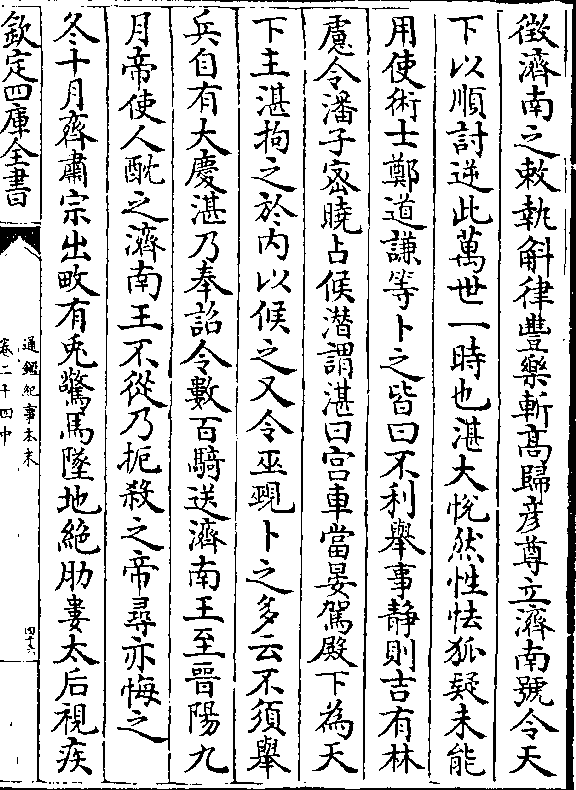 徵濟南之敕執斛律豐樂斬高歸彦尊立濟南號令天
下以順討逆此萬世一時也湛大悅然性怯狐疑未能
用使術士鄭道謙等卜之皆曰不利舉事静則吉有林
慮令潘子宻曉占候潛謂湛曰宫車當晏駕殿下為天
下主湛拘之於内以候之又令巫覡卜之多云不須舉
兵自有大慶湛乃奉詔令數百騎送濟南王至晉陽九
月帝使人酖之濟南王不從乃扼殺之帝尋亦悔之
冬十月齊肅宗出畋有兎驚馬墜地絶肋婁太后視疾
欽定四庫全書
通鑑紀事本末
卷二十四中
四十六